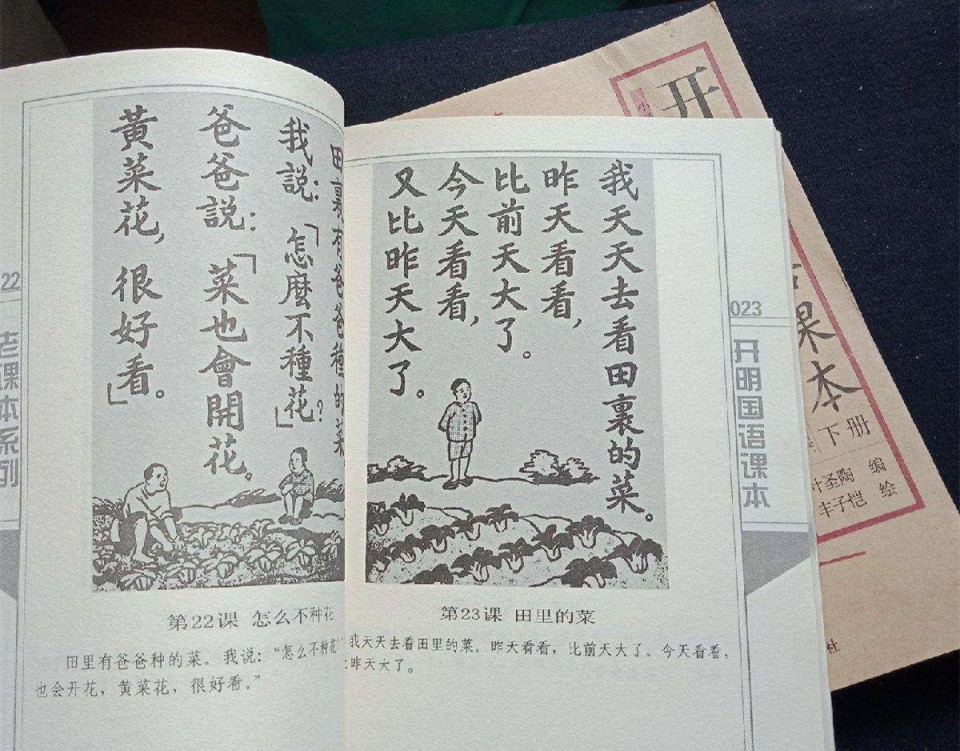 田裏有爸爸種的菜
我說：「怎麼不種花？」
爸爸說：「菜也會開花。
黃菜花，很好看。」
22
老课本系列
第22课 怎么不种花
田里有爸爸种的菜。我说：“怎么不种花
也会开花，黄菜花，很好看。”
我天天去看田裏的菜。
昨天看看，
比前天大了。
今天看看，
又比昨天大了。
023
开明国语课本
第23课 田里的菜
我天天去看田里的菜。昨天看看，比前天大了。今天看看，
比昨天大了。
开
课本
下册
叶圣陶 编
丰子恺 绘
社